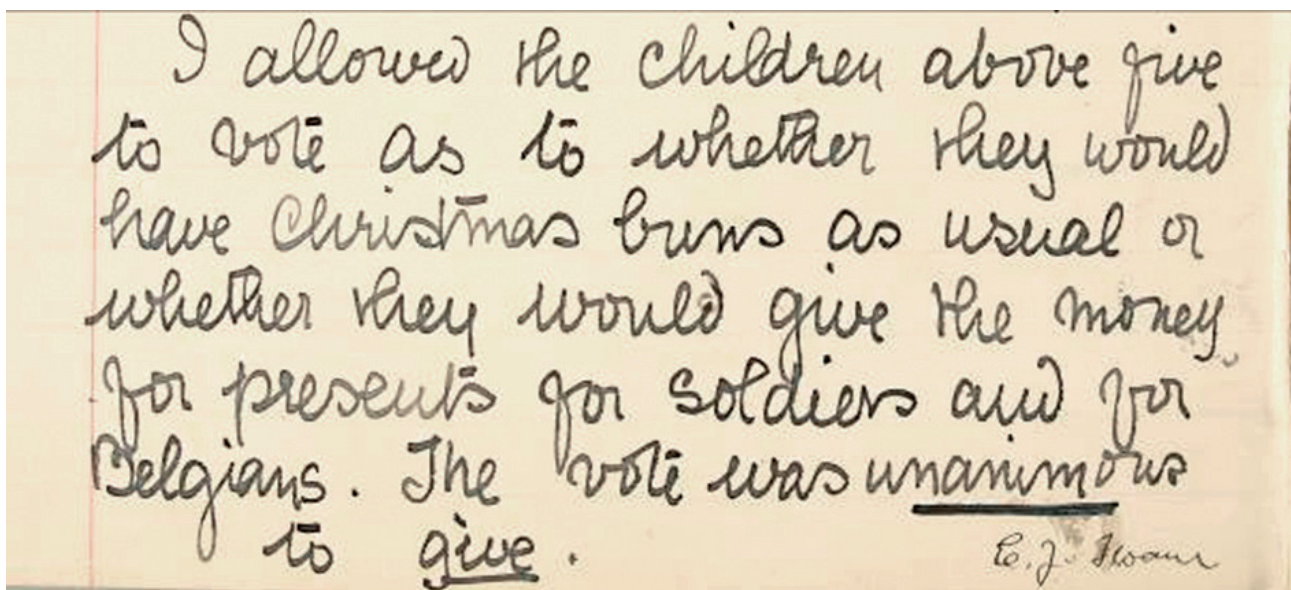 I allowed the children above five
to vote as to whether they would
have Christmas buns as usual or
whether they would give the money
for presents for soldiers and for
Belgians. The vote was unanimous
to give.
E. J.